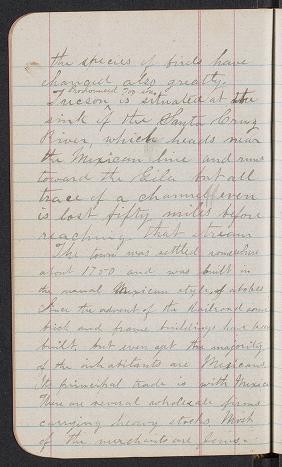 the species of birds have
changed also greatly.
Pronounced Too-son
Tucson is situated at the
sink of the Santa Cruz
River, which heads near
the Mexican line and runs
toward the Gila but all
trace of a channel even
is lost fifty miles before
reaching that stream
The town was settled somewhere
about 1700 and was built in
the usual Mexican style of adobes
Since the advent of the Railroad some
brick and frame buildings have been
built, but even yet the majority
of the inhabitants are Mexicans.
Its principal trade is with Mexico
There are several wholesale firms
carrying heavy stocks. Most
of the merchants are Jews.